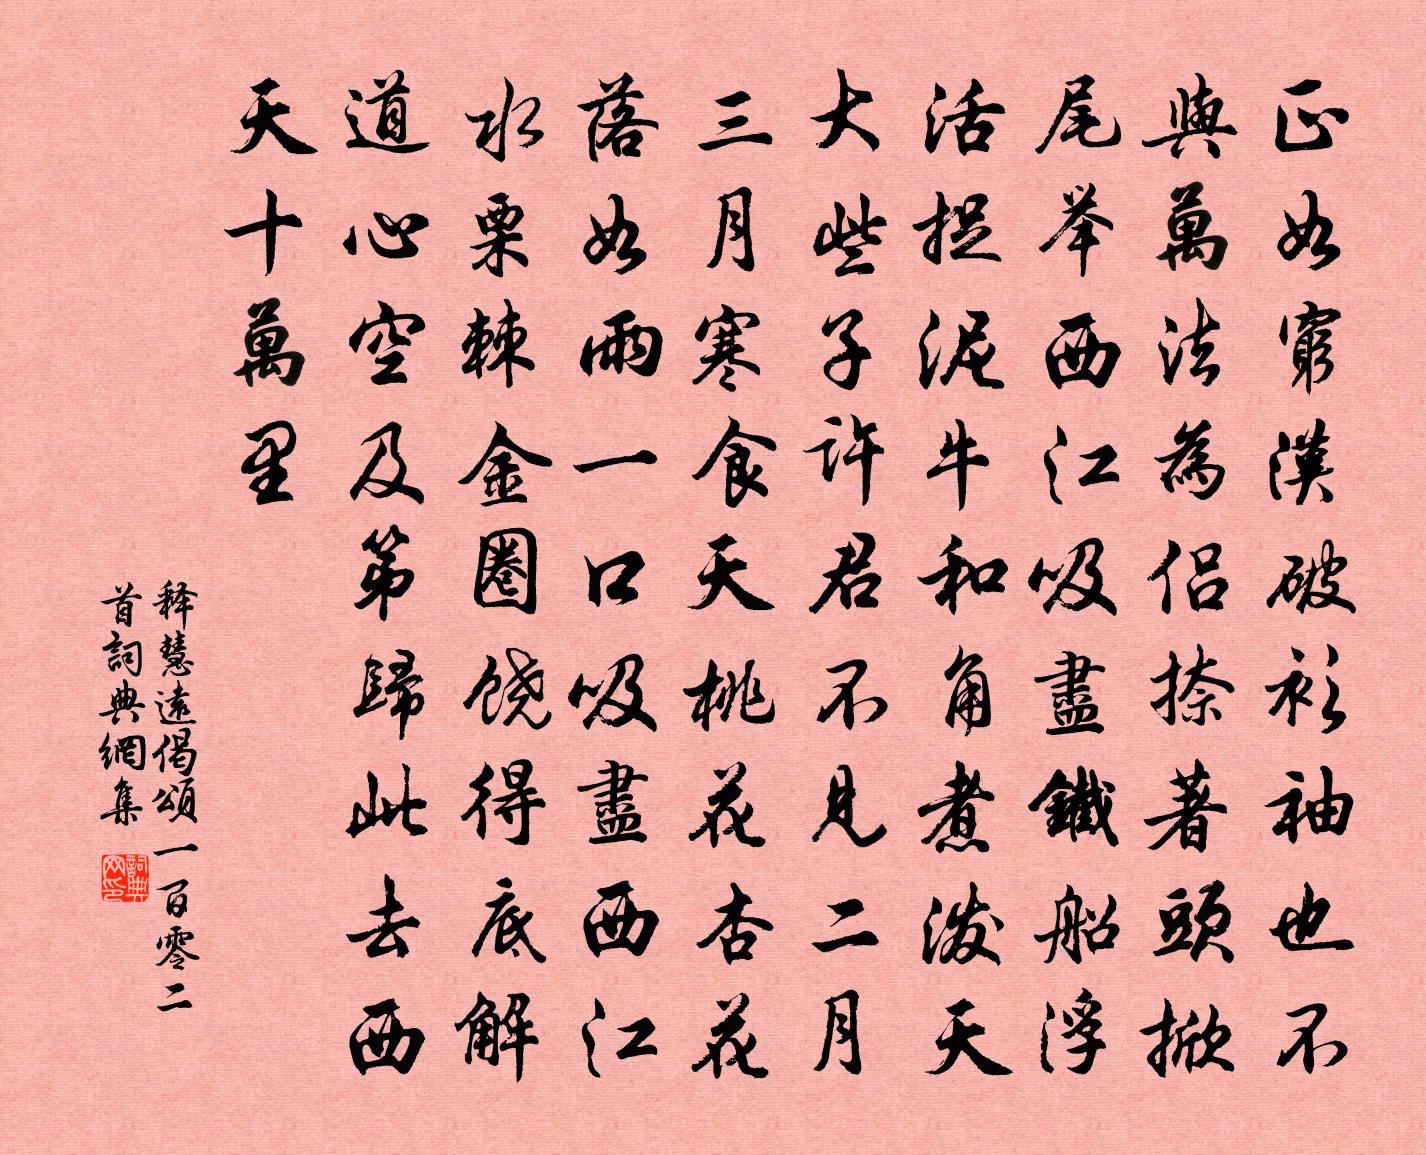 正如窮漢破衫袖也不
與萬法為侶捺著頭掀
尾举西江吸盡鐵船浮
活捉泥牛和角煮泼天
大些子許君不見二月
三月寒食天桃花杏花
落如雨一口吸盡西江
水栗棘金圈饶得底解
道心空及第歸此去西
天十萬里
释慧遠偈頌一百零二
首詞典網集
詞典网印